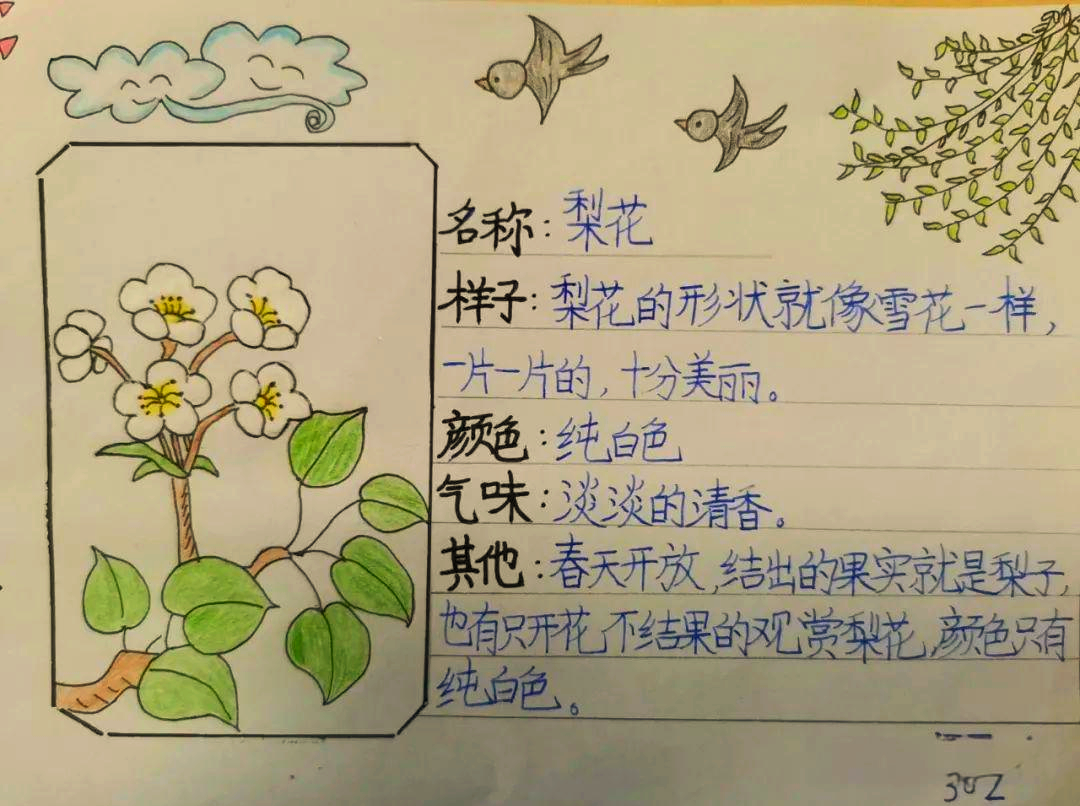 名称：梨花
样子：梨花的形状就像雪花一样，
一片一片的，十分美丽。
颜色：纯白色
气味：淡淡的清香。
其他：春天开放，结出的果实就是梨子，
也有只开花，不结果的观赏梨花，颜色只有
纯白色。
302